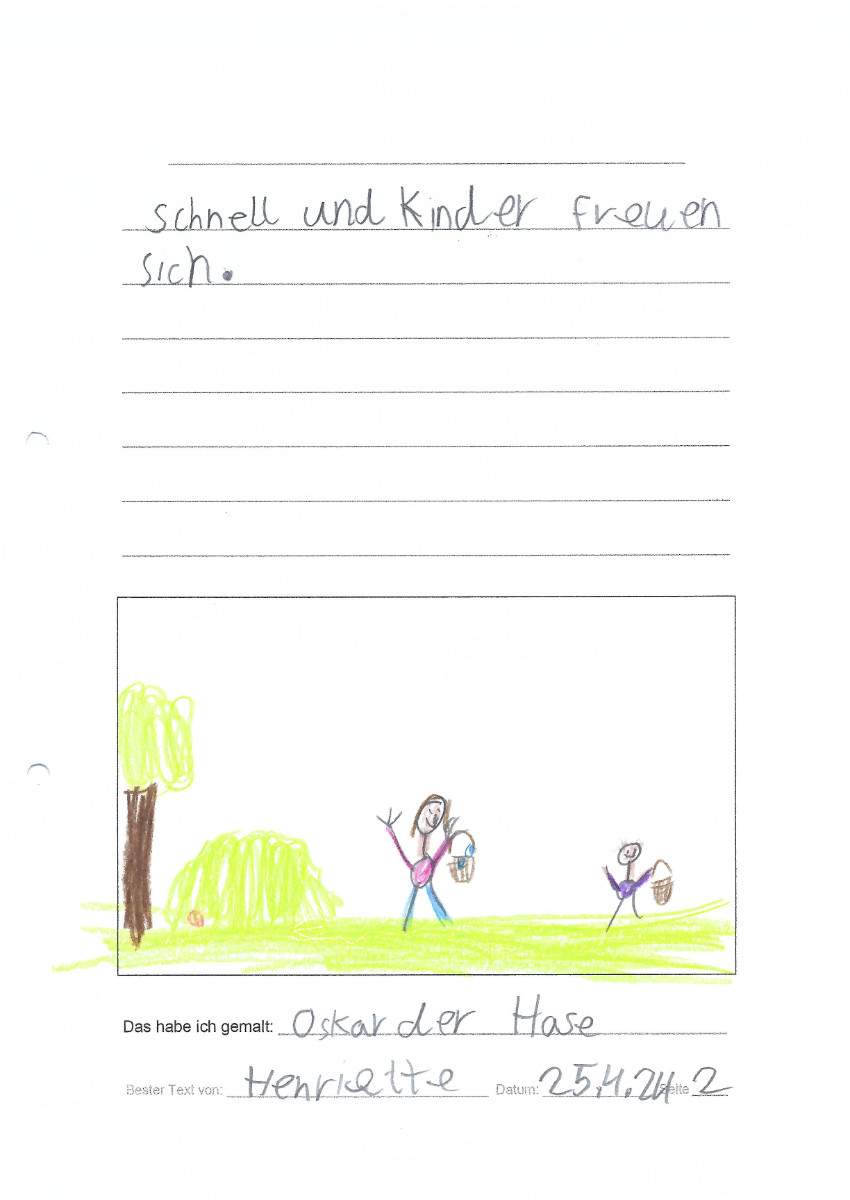 schnell und Kinder freuen
sich.
Das habe ich gemalt: Oskar der Hase
Bester Text von: Henriette Datum: 25.4.24 Seite 2